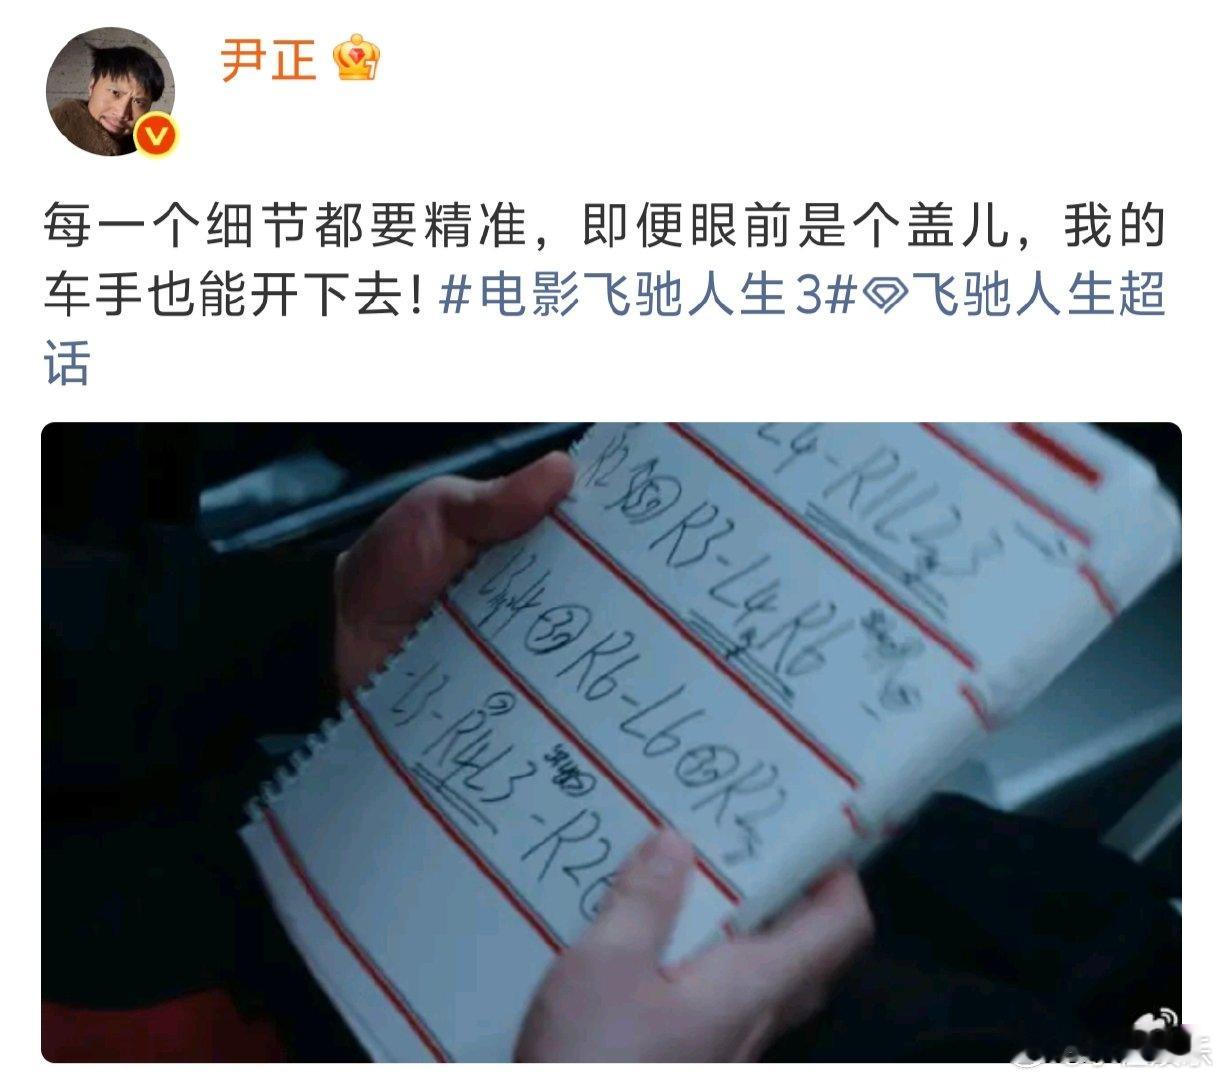 尹正
每一个细节都要精准，即便眼前是个盖儿，我的
车手也能开下去！#电影飞驰人生3#飞驰人生超
话
L4-R1L2
R3-L4R6
R6-L6
R2
L3-R4L3
-R2